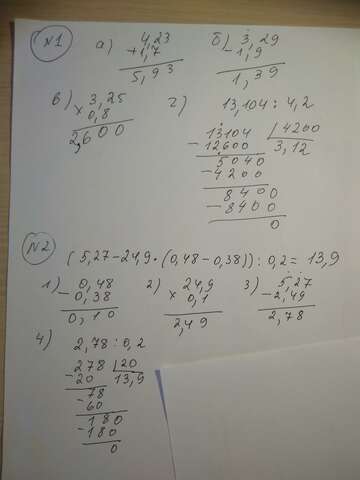 №1 а) 4,23 б) 3,29
+1,7 -1,9
5,93 1,39
в) 3,25 г) 13,104 : 4,2
× 0,8 13104 | 4200
2,600 -12600 3,12
5040
-4200
8400
-8400
0
№2
(5,27-24,9·(0,48-0,38)):0,2=13,9
1) 0,48 2) 24,9 3) 5,27
-0,38 × 0,1 -2,49
0,10 2,49 2,78
4) 2,78 : 0,2
278 | 20
-20 13,9
-78
60
180
-180
0